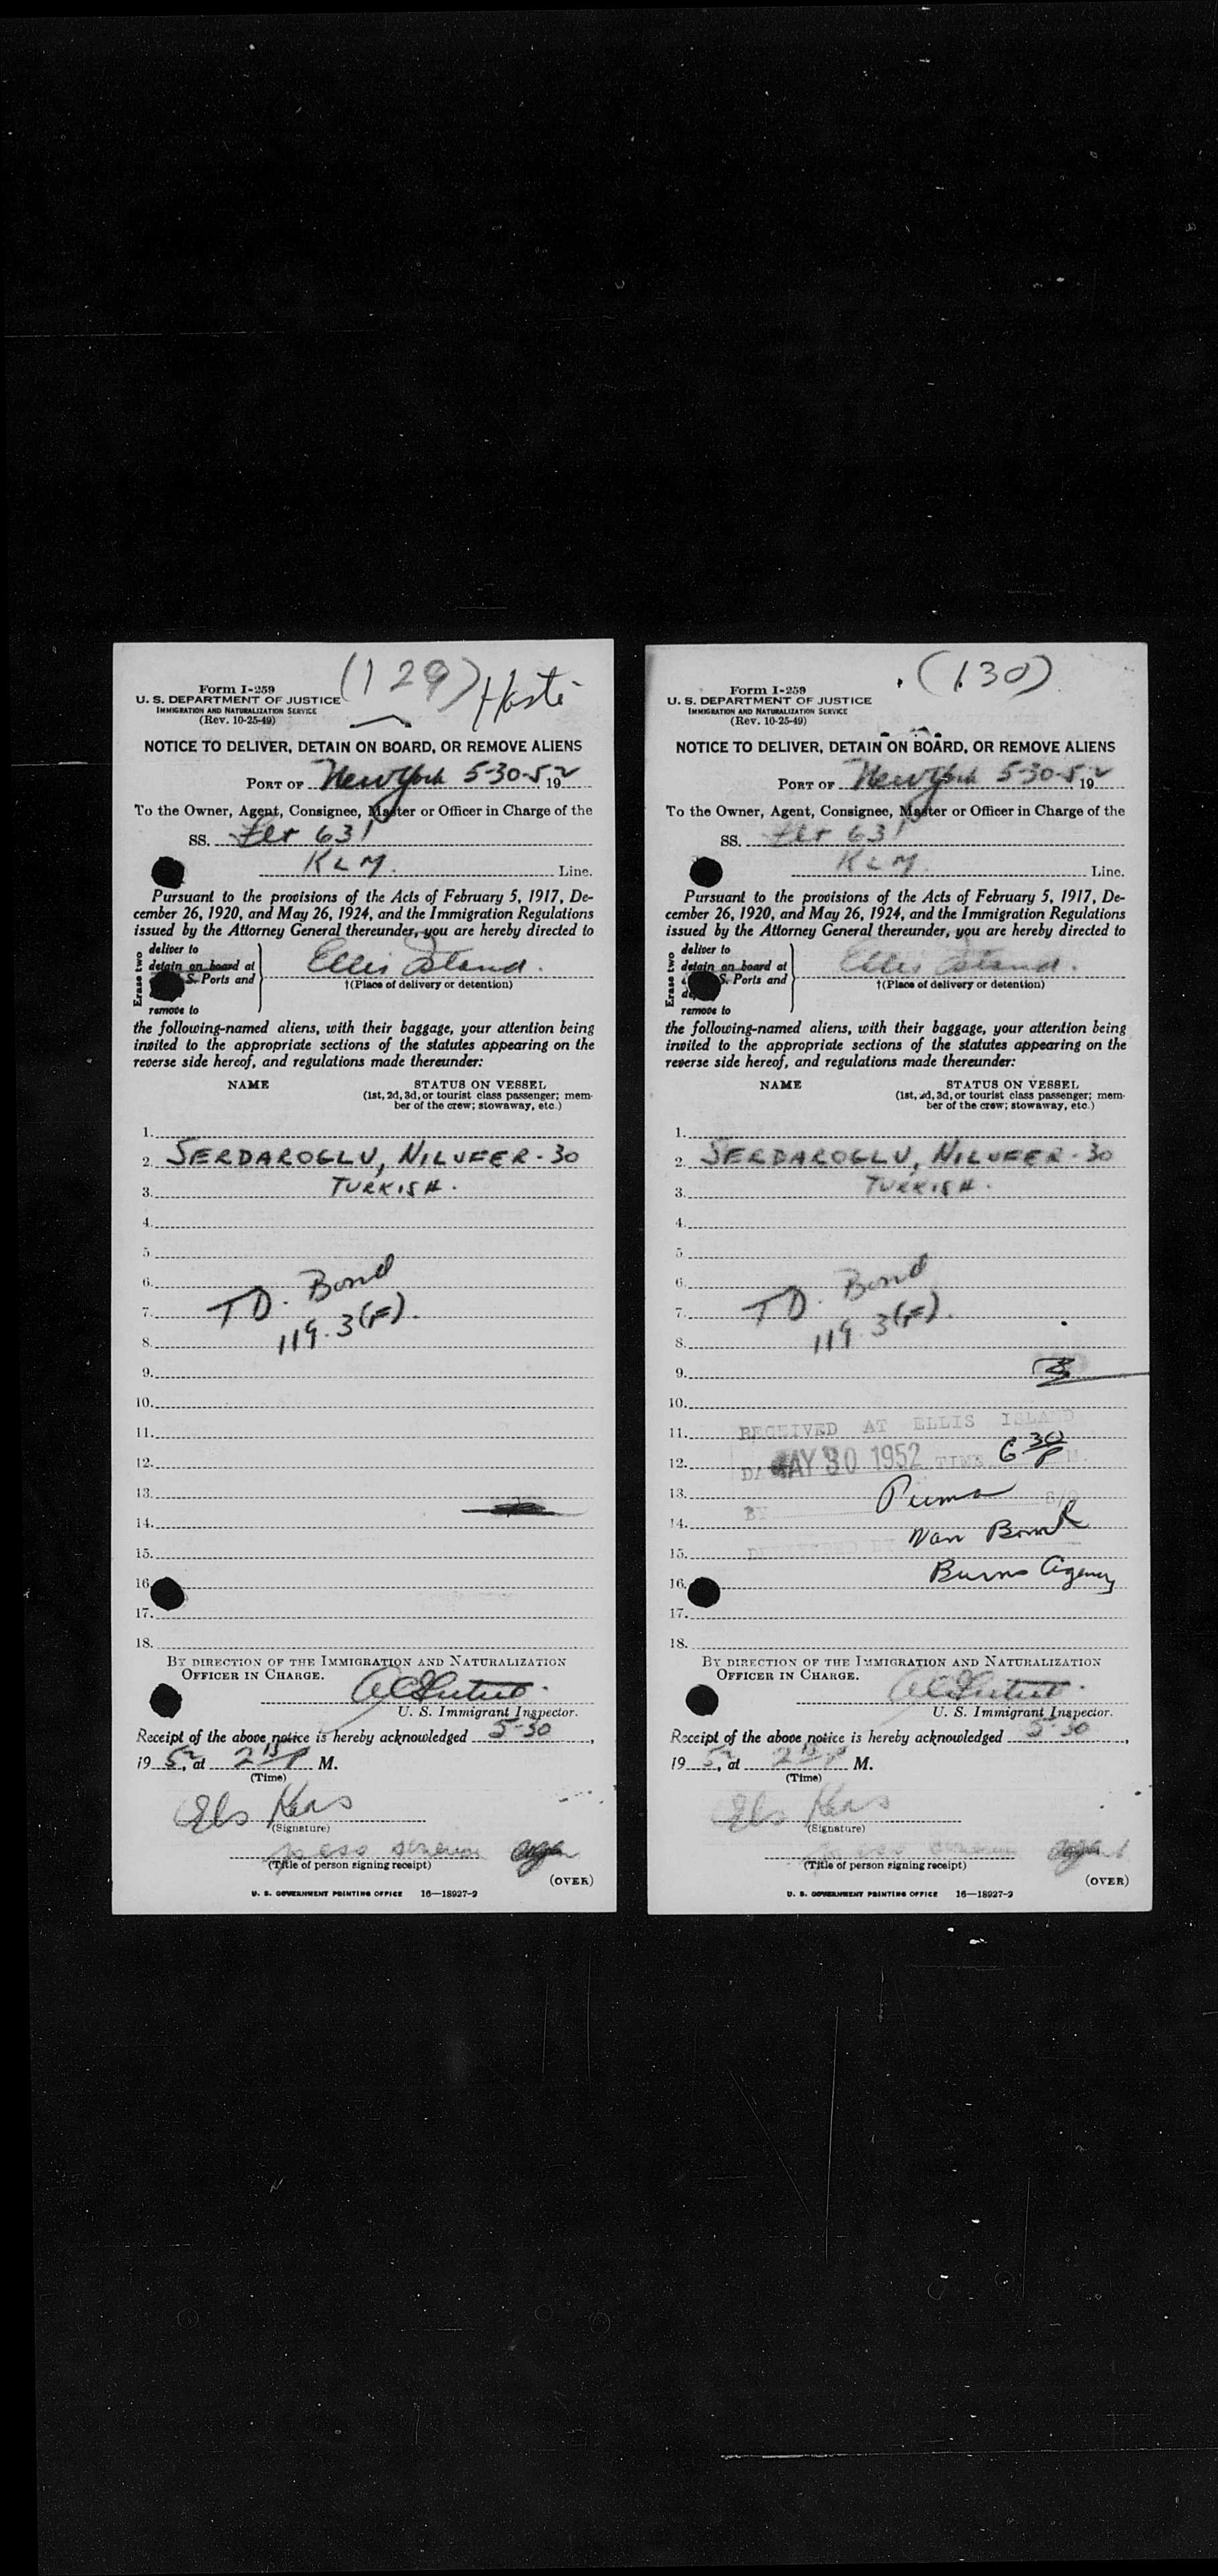 (129)
Form I-259
U. S. DEPARTMENT OF JUSTICE
IMMIGRATION AND NATURALIZATION SERVICE
(Rev. 10-25-49)
NOTICE TO DELIVER, DETAIN ON BOARD, OR REMOVE ALIENS
PORT OF New York 5-30-52, 19
To the Owner, Agent, Consignee, Master or Officer in Charge of the
SS. Flt 631
KLM. Line.
Pursuant to the provisions of the Acts of February 5, 1917, De-
cember 26, 1920, and May 26, 1924, and the Immigration Regulations
issued by the Attorney General thereunder, you are hereby directed to
Erase two
deliver to
detain on board at
S. Ports and
remove to
Ellis Island.
†(Place of delivery or detention)
the following-named aliens, with their baggage, your attention being
invited to the appropriate sections of the statutes appearing on the
reverse side hereof, and regulations made thereunder:
NAME STATUS ON VESSEL
(1st, 2d, 3d, or tourist class passenger; mem-
ber of the crew; stowaway, etc.)
1.
2. SERDAROGLU, NILUFER - 30
3. TURKISH.
4.
5.
6. Bond
7. T D.
8. 119.3(F).
9.
10.
11.
12.
13.
14.
15.
16.
17.
18.
BY DIRECTION OF THE IMMIGRATION AND NATURALIZATION
OFFICER IN CHARGE.
U. S. Immigrant Inspector.
Receipt of the above notice is hereby acknowledged 5-30,
19 52, at 2 15 P M.
(Time)
(Signature)
(Title of person signing receipt)
(OVER)
U. S. GOVERNMENT PRINTING OFFICE 16—18927-2
(130)
Form I-259
U. S. DEPARTMENT OF JUSTICE
IMMIGRATION AND NATURALIZATION SERVICE
(Rev. 10-25-49)
NOTICE TO DELIVER, DETAIN ON BOARD, OR REMOVE ALIENS
PORT OF New York 5-30-52, 19
To the Owner, Agent, Consignee, Master or Officer in Charge of the
SS. Flt 631
KLM. Line.
Pursuant to the provisions of the Acts of February 5, 1917, De-
cember 26, 1920, and May 26, 1924, and the Immigration Regulations
issued by the Attorney General thereunder, you are hereby directed to
Erase two
deliver to
detain on board at
S. Ports and
remove to
Ellis Island.
†(Place of delivery or detention)
the following-named aliens, with their baggage, your attention being
invited to the appropriate sections of the statutes appearing on the
reverse side hereof, and regulations made thereunder:
NAME STATUS ON VESSEL
(1st, 2d, 3d, or tourist class passenger; mem-
ber of the crew; stowaway, etc.)
1.
2. SERDAROGLU, NILUFER - 30
3. TURKISH.
4.
5.
6. Bond
7. T D.
8. 119.3(F).
9.
10.
11. RECEIVED AT ELLIS ISLAND
12. MAY 30 1952 TIME 6 30 P M.
13.
BY
14. Van
15.
16. Burns Agency
17.
18.
BY DIRECTION OF THE IMMIGRATION AND NATURALIZATION
OFFICER IN CHARGE.
U. S. Immigrant Inspector.
Receipt of the above notice is hereby acknowledged 5-30,
19 52, at 2 15 P M.
(Time)
(Signature)
(Title of person signing receipt)
(OVER)
U. S. GOVERNMENT PRINTING OFFICE 16—18927-2